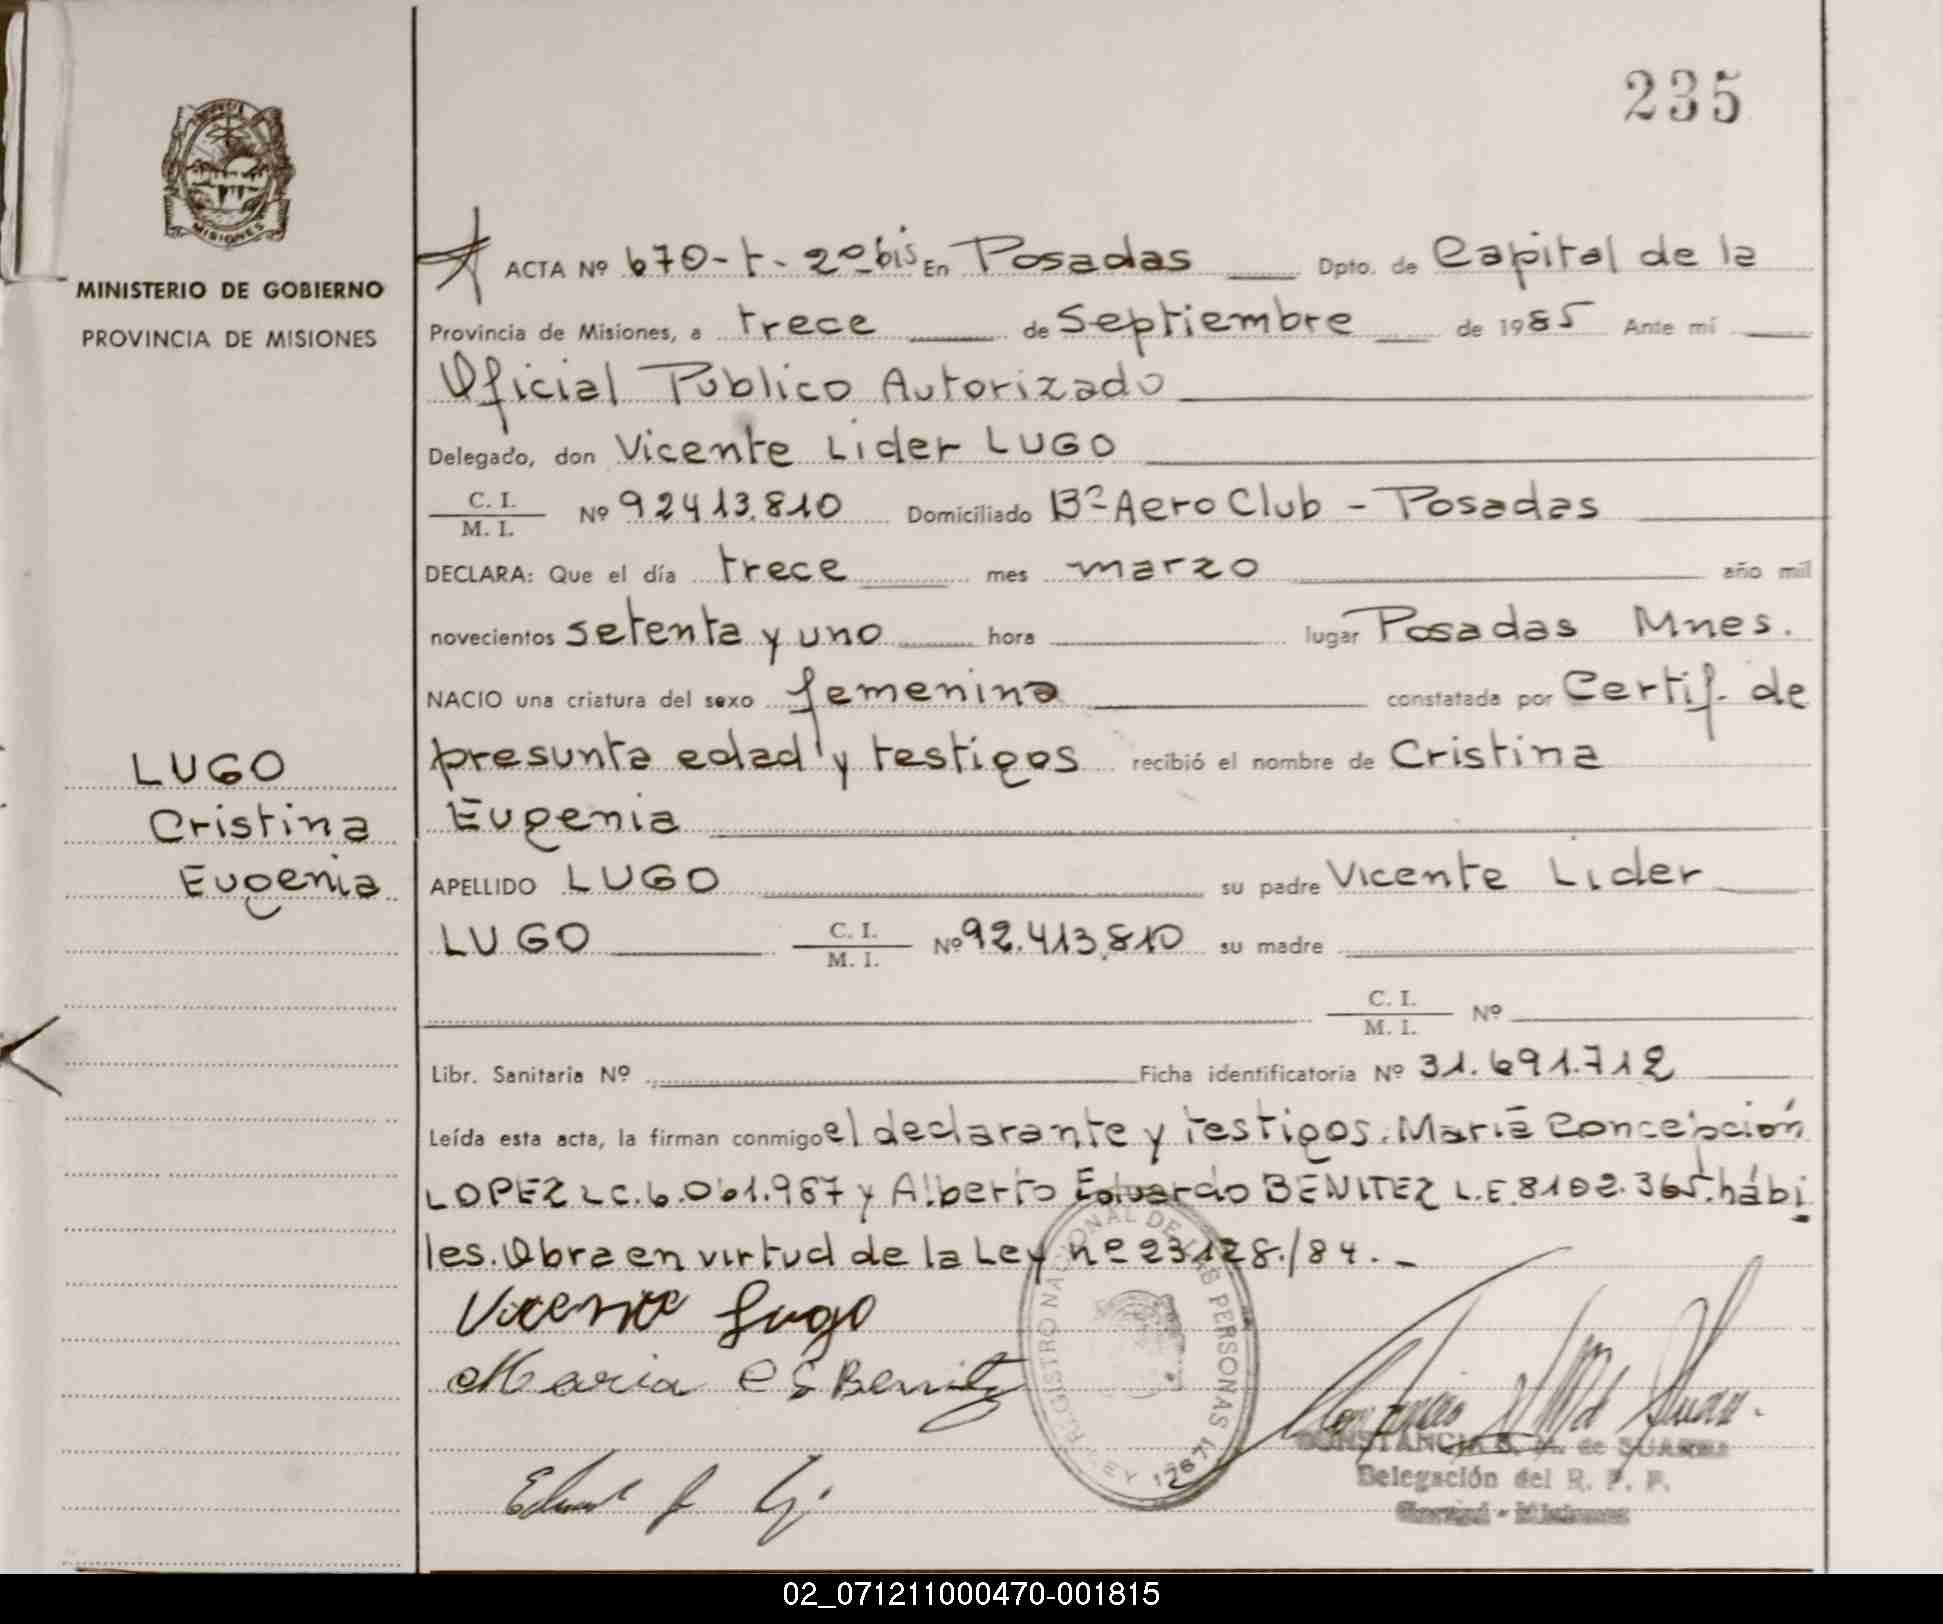 235
MINISTERIO DE GOBIERNO
PROVINCIA DE MISIONES
LUGO
Cristina
Eugenia
ACTA Nº 670-t-2º bis En Posadas Dpto. de Capital de la
Provincia de Misiones, a trece de Septiembre de 1985 Ante mí
Oficial Publico Autorizado
Delegado, don Vicente Lider LUGO
C. I.
M. I. Nº 92413.810 Domiciliado Bº Aero Club - Posadas
DECLARA: Que el día trece mes marzo año mil
novecientos setenta y uno hora lugar Posadas Mnes.
NACIO una criatura del sexo femenino constatada por Certif. de
presunta edad y testigos recibió el nombre de Cristina
Eugenia
APELLIDO LUGO su padre Vicente Lider
LUGO C. I. M. I. Nº 92.413.810 su madre
C. I.
M. I. Nº
Libr. Sanitaria Nº Ficha identificatoria Nº 31.691.712
Leída esta acta, la firman conmigo el declarante y testigos. María Concepción
LOPEZ LC. 6.061.987 y Alberto Eduardo BENITEZ L.E. 8102.365. hábi
les. Obra en virtud de la Ley nº 23128./84.-
Vicente Lugo
Maria Benitez
REGISTRO NACIONAL DE LAS PERSONAS
LEY 12671
CONSTANCIA de SUAREZ
Delegación del R. P. P.
Misiones
02_071211000470-001815